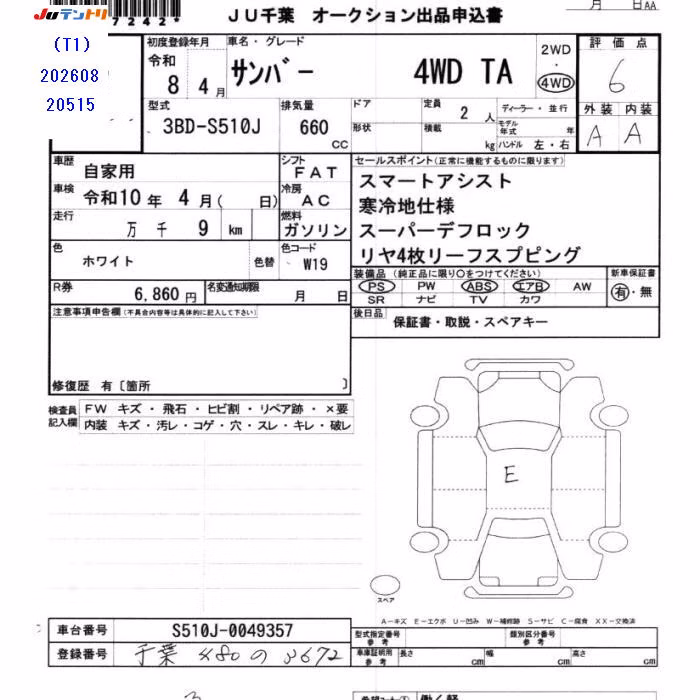 JUテントリ
7242*
月 日AA
JU千葉 オークション出品申込書
(T1)
202608
20515
初度登録年月
令和
8年4月
車名・グレード
サンバー 4WD TA
2WD
・
4WD
評価点
6
外装 内装
A A
型式
3BD-S510J
排気量
660
CC
ドア
形状
定員
2 人
積載
kg
ディーラー・並行
モデル
年式 年
ハンドル 左・右
車歴
自家用
シフト
FAT
車検
令和10年 4月( 日)
冷房
AC
走行
万 千 9 km
燃料
ガソリン
色
ホワイト
色替
色コード
W19
R券
6,860円
名変通知期限
月 日
セールスポイント(正常に機能するものに限ります)
スマートアシスト
寒冷地仕様
スーパーデフロック
リヤ4枚リーフスプピング
装備品(純正品に限り○をつけてください)
PS PW ABS エアB AW
SR ナビ TV カワ
新車保証書
有・無
後日品
保証書・取説・スペアキー
注意事項申告欄(不具合内容等は具体的に記入して下さい)
修復歴 有〔箇所 〕
検査員
記入欄
FW キズ・飛石・ヒビ割・リペア跡・×要
内装 キズ・汚レ・コゲ・穴・スレ・キレ・破レ
E
スペア
A―キズ E―エクボ U―凹み W―補修跡 S―サビ C―腐食 XX―交換済
車台番号
S510J-0049357
登録番号
千葉 480 の 3672
型式指定番号
参考
類別区分番号
参考
車庫証明用
参考
長さ cm
幅 cm
高さ cm